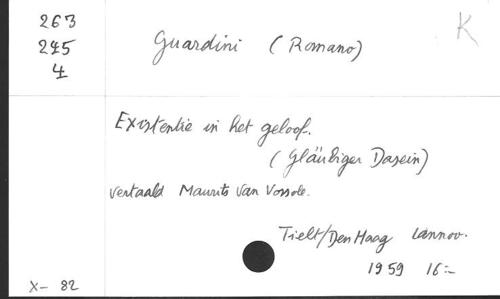 263
245
4
Guardini (Romano)
K
Existentie in het geloof.
(Gläubiger Dasein)
vertaald Maurits Van Vossole.
Tielt/Den Haag Lannoo.
1959 16:-
X- 82